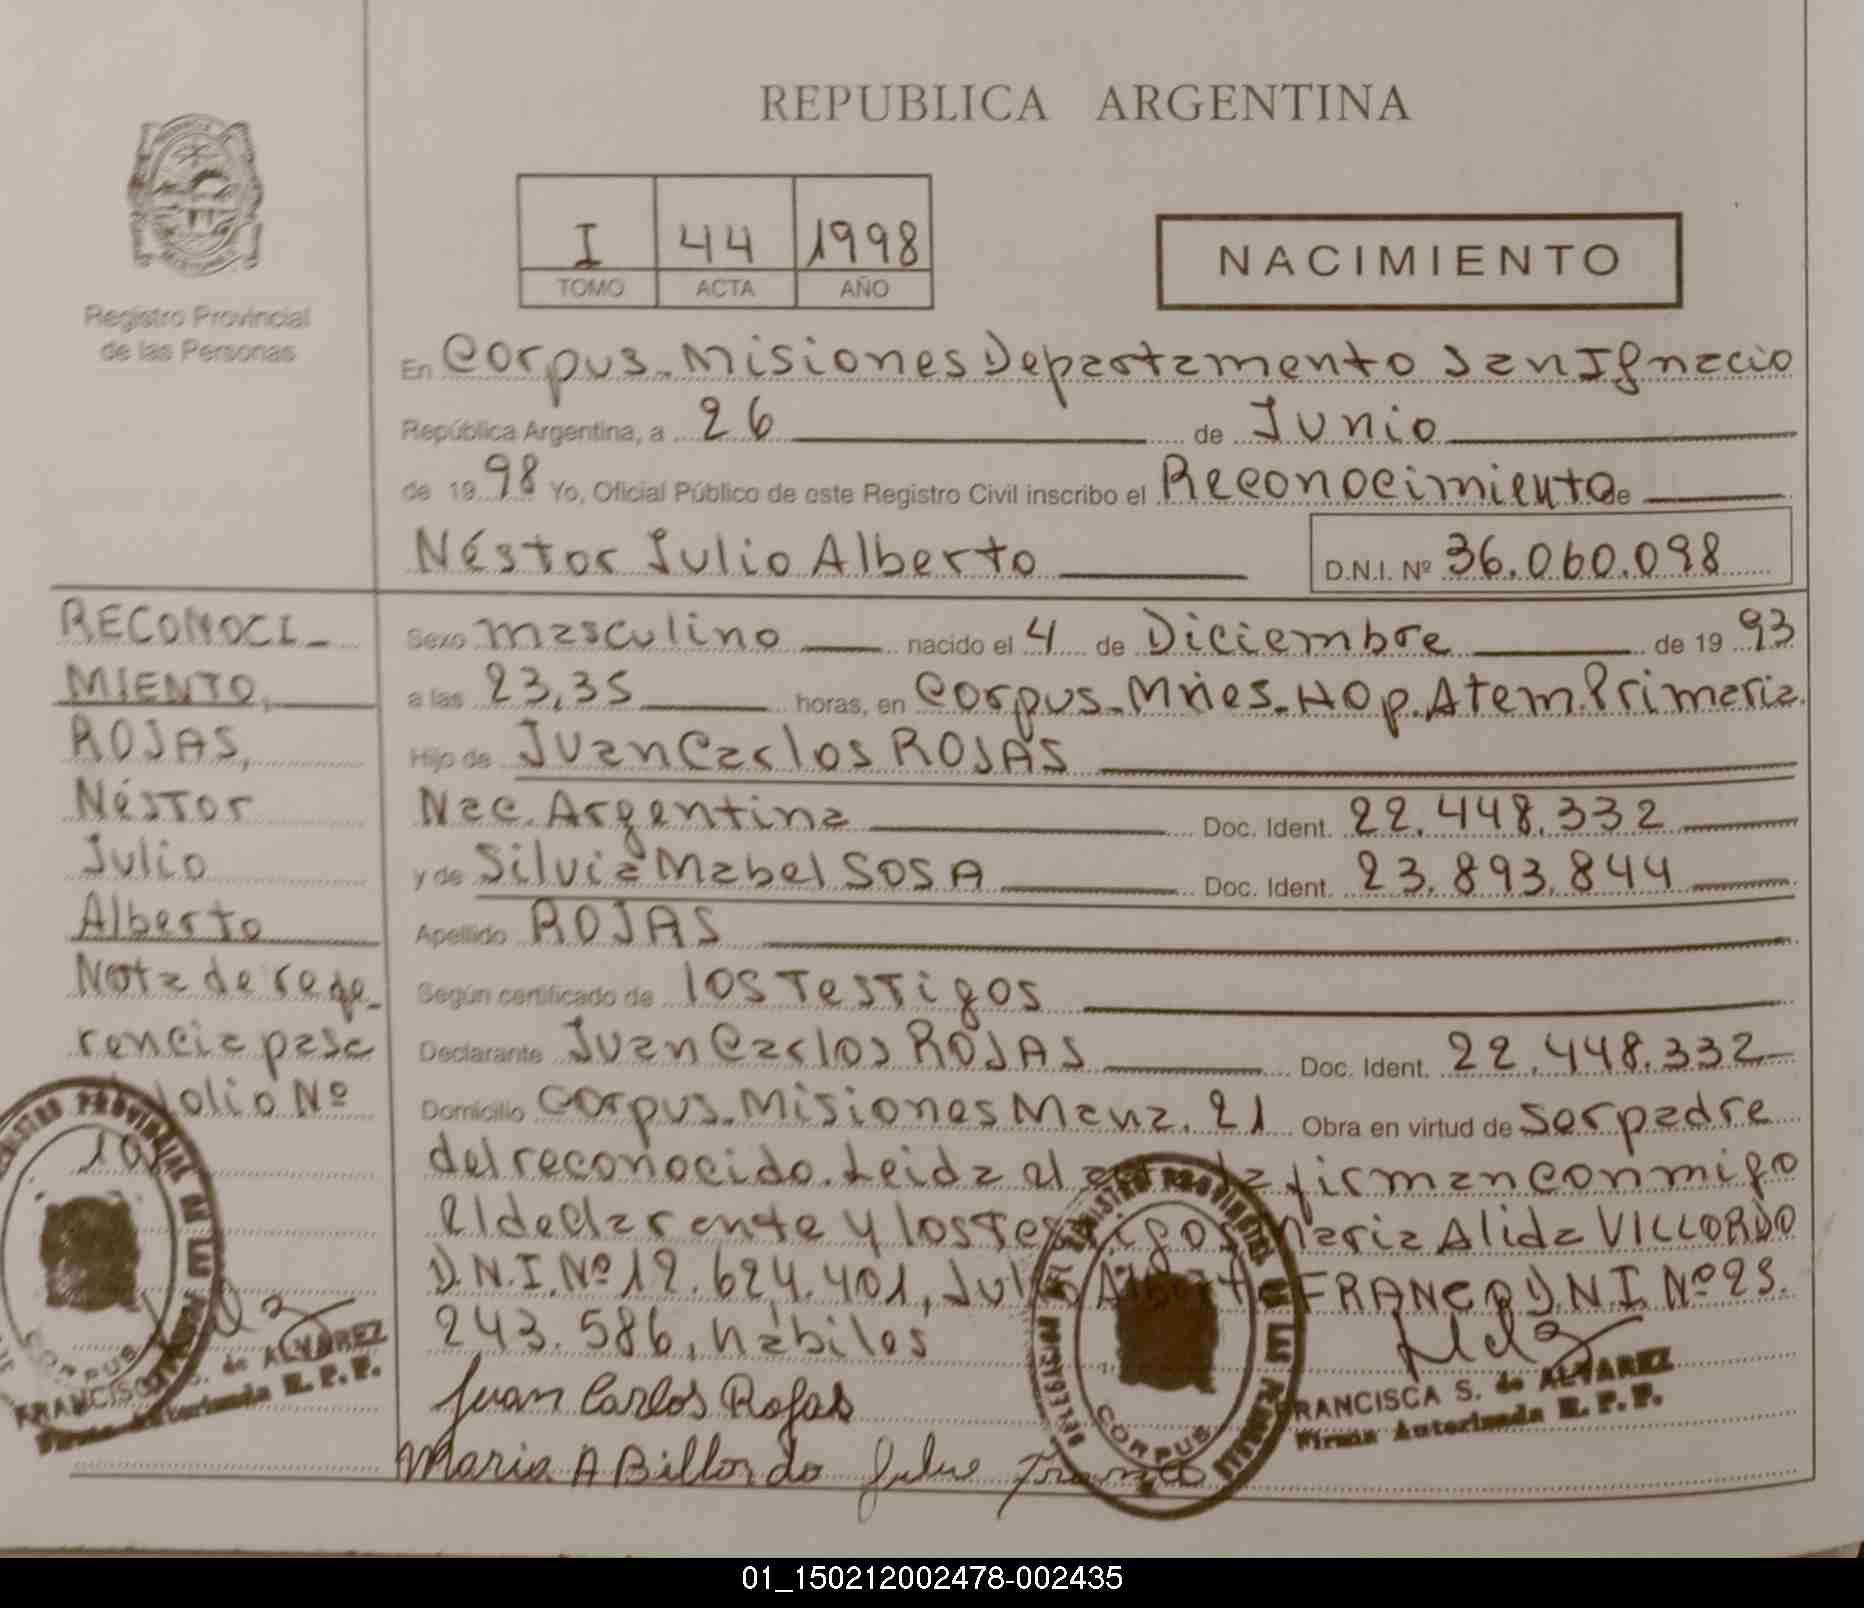 REPUBLICA ARGENTINA
Registro Provincial
de las Personas
I 44 1998
TOMO ACTA AÑO
NACIMIENTO
En Corpus-Misiones Departamento San Ignacio
República Argentina, a 26 de Junio
de 1998 Yo, Oficial Público de este Registro Civil inscribo el Reconocimiento de
Néstor Julio Alberto D.N.I. Nº 36.060.098
RECONOCI-
MIENTO,
ROJAS,
Néstor
Julio
Alberto
Nota de refe-
rencia pasa
folio Nº
Sexo masculino nacido el 4 de Diciembre de 1993
a las 23,35 horas, en Corpus-Mnes-Hop.Atem.Primaria.
Hijo de Juan Carlos ROJAS
Nac. Argentina Doc. Ident. 22.448.332
y de Silvia Mabel SOSA Doc. Ident. 23.893.844
Apellido ROJAS
Según certificado de los Testigos
Declarante Juan Carlos ROJAS Doc. Ident. 22.448.332
Domicilio Corpus-Misiones Manz. 21 Obra en virtud de ser padre
del reconocido. Leida el acta la firman conmigo
el declarante y los testigos Maria Alida VILLORDO
D.N.I.Nº 12.624.401, Julio Alberto FRANCO D.N.I. Nº 25.
243.586, hábiles
Juan Carlos Rojas
Maria A Billordo Julio Franco
REGISTRO PROVINCIAL DE LAS PERSONAS
CORPUS
FRANCISCA S. de ALVAREZ
Firma Autorizada R.P.P.
DELEGACION REGISTRO PROVINCIAL DE LAS PERSONAS
CORPUS
FRANCISCA S. de ALVAREZ
Firma Autorizada R.P.P.
01_150212002478-002435